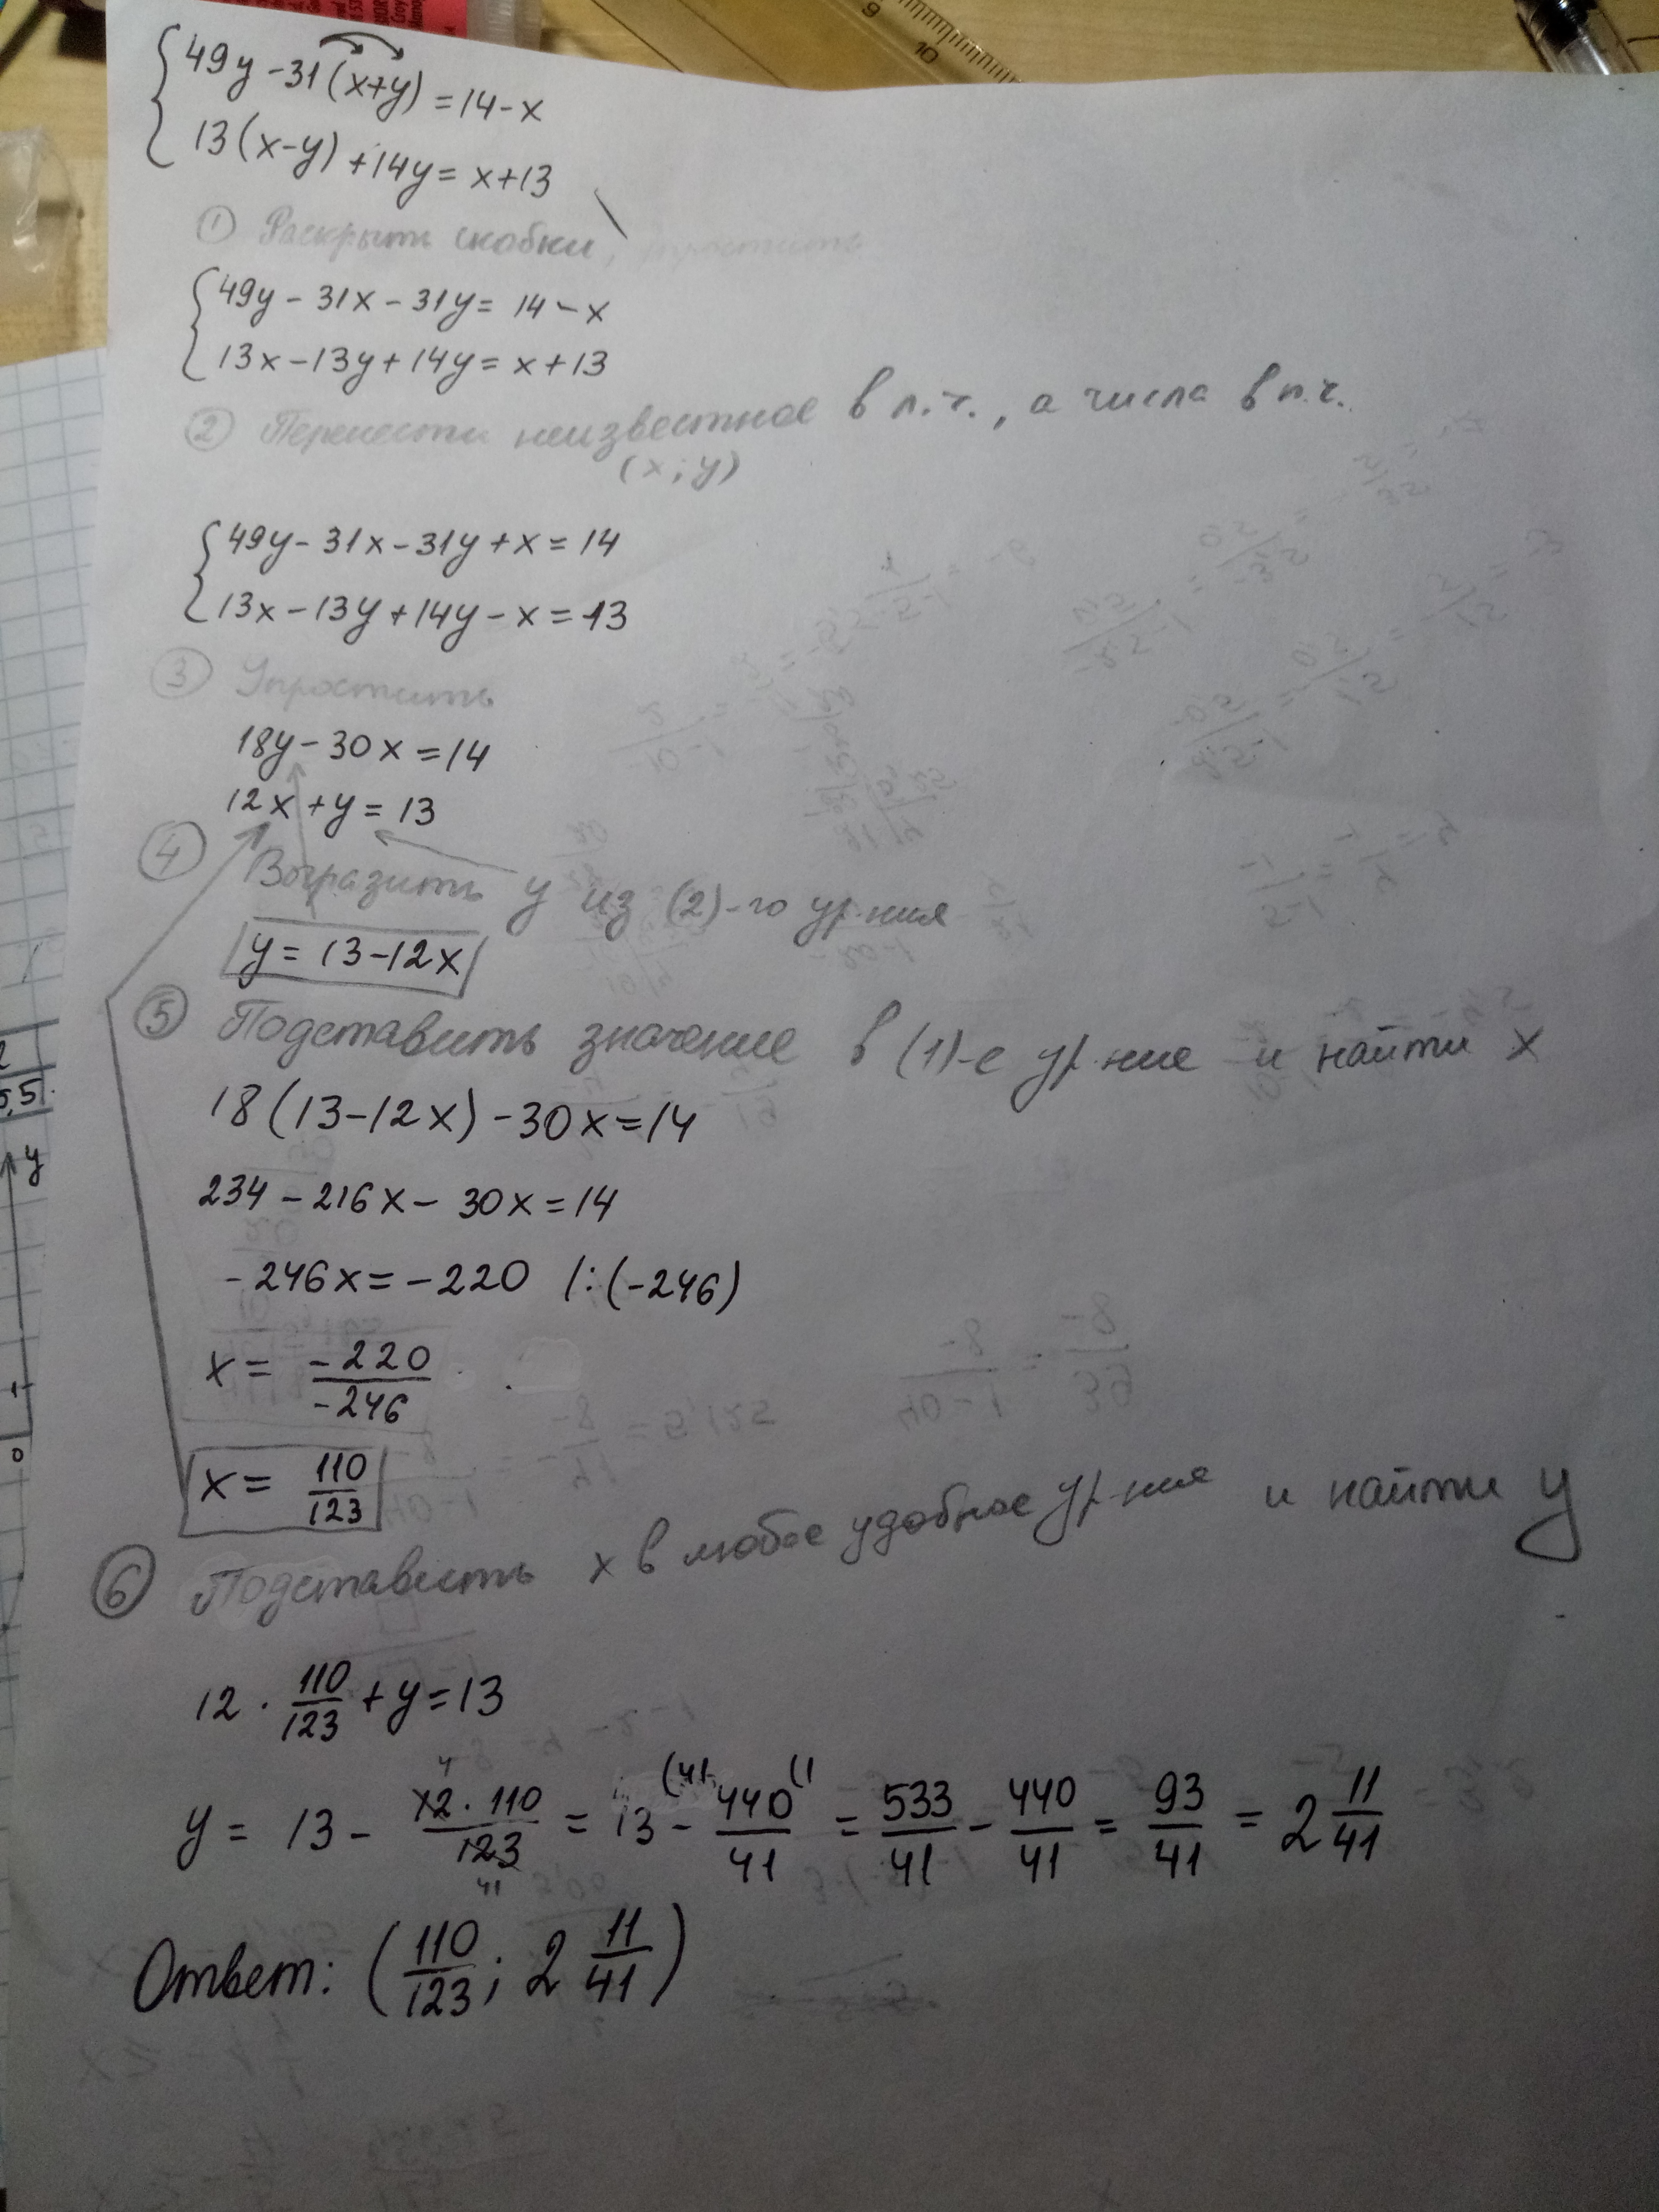 49y - 31(x+y) = 14 - x
13(x-y) + 14y = x + 13
① Раскрыть скобки, упростить
49y - 31x - 31y = 14 - x
13x - 13y + 14y = x + 13
② Перенести неизвестное в л.ч., а числа в п.ч.
(x; y)
49y - 31x - 31y + x = 14
13x - 13y + 14y - x = 13
③ Упростить
18y - 30x = 14
12x + y = 13
④ Выразить y из (2)-го ур-ния
y = 13 - 12x
⑤ Подставить значение в (1)-е ур-ние и найти x
18(13 - 12x) - 30x = 14
234 - 216x - 30x = 14
-246x = -220 /:(-246)
x = -220/-246
x = 110/123
⑥ Подставить x в любое удобное ур-ние и найти y
12 · 110/123 + y = 13
y = 13 - 12·110/123 = 13 - 440/41 = 533/41 - 440/41 = 93/41 = 2 11/41
Ответ: (110/123; 2 11/41)